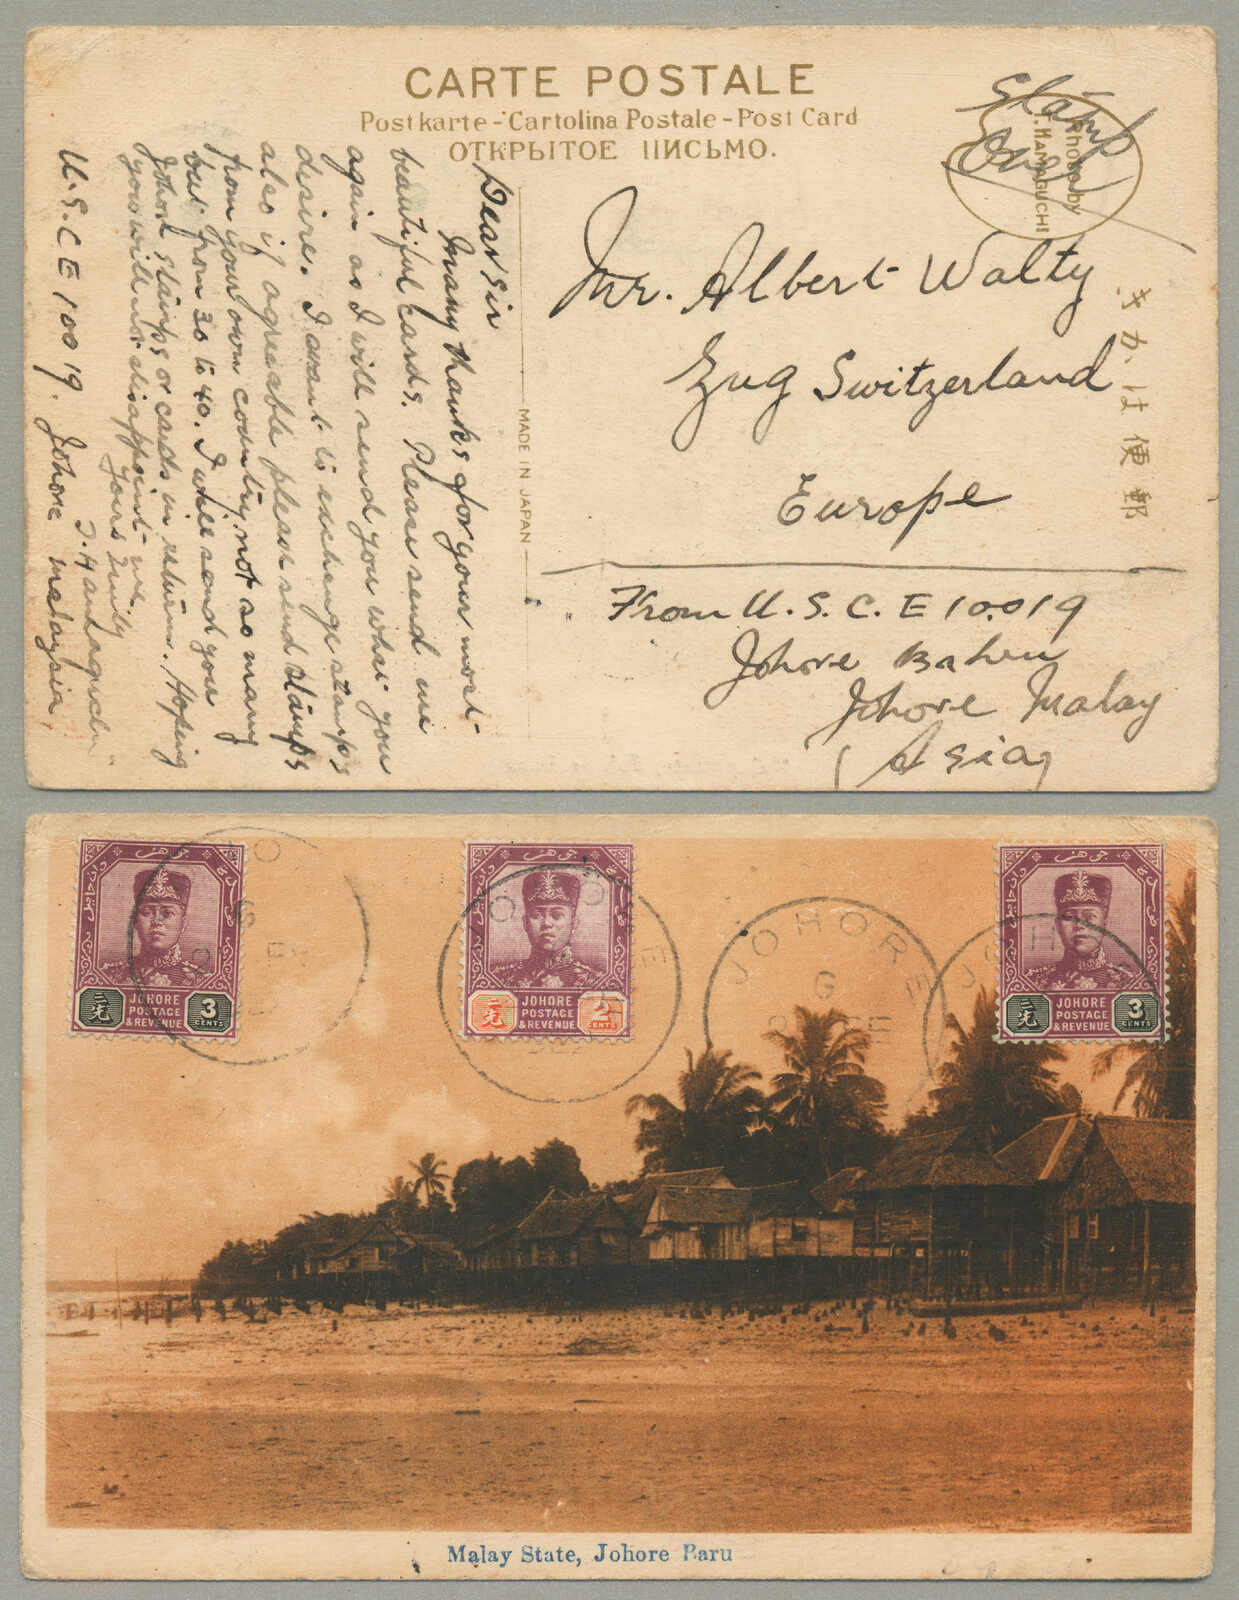 CARTE POSTALE
Postkarte - Cartolina Postale - Post Card
ОТКРЫТОЕ ПИСЬМО.
Stamp
Over
Photo by
T. HAMAGUCHI
きかは便郵
MADE IN JAPAN
Dear Sir
Many thanks for your most-
beautiful cards. Please send me
again as I will send you what you
desire. I want to exchange stamps
also if agreeable please send stamps
from your own country, not so many
but from 30 to 40. I will send you
Johore stamps or cards in return. Hoping
you will not disappoint me
Yours truly
U.S.C E 10019. Johore Malaysia
Mr. Albert Walty
Zug Switzerland
Europe
From U.S.C. E 10.019
Johore Bahru
Johore Malay
(Asia)
JOHORE
POSTAGE
& REVENUE
3
CENTS
JOHORE
POSTAGE
& REVENUE
2
CENTS
JOHORE
POSTAGE
& REVENUE
3
CENTS
JOHORE
G
Malay State, Johore Baru